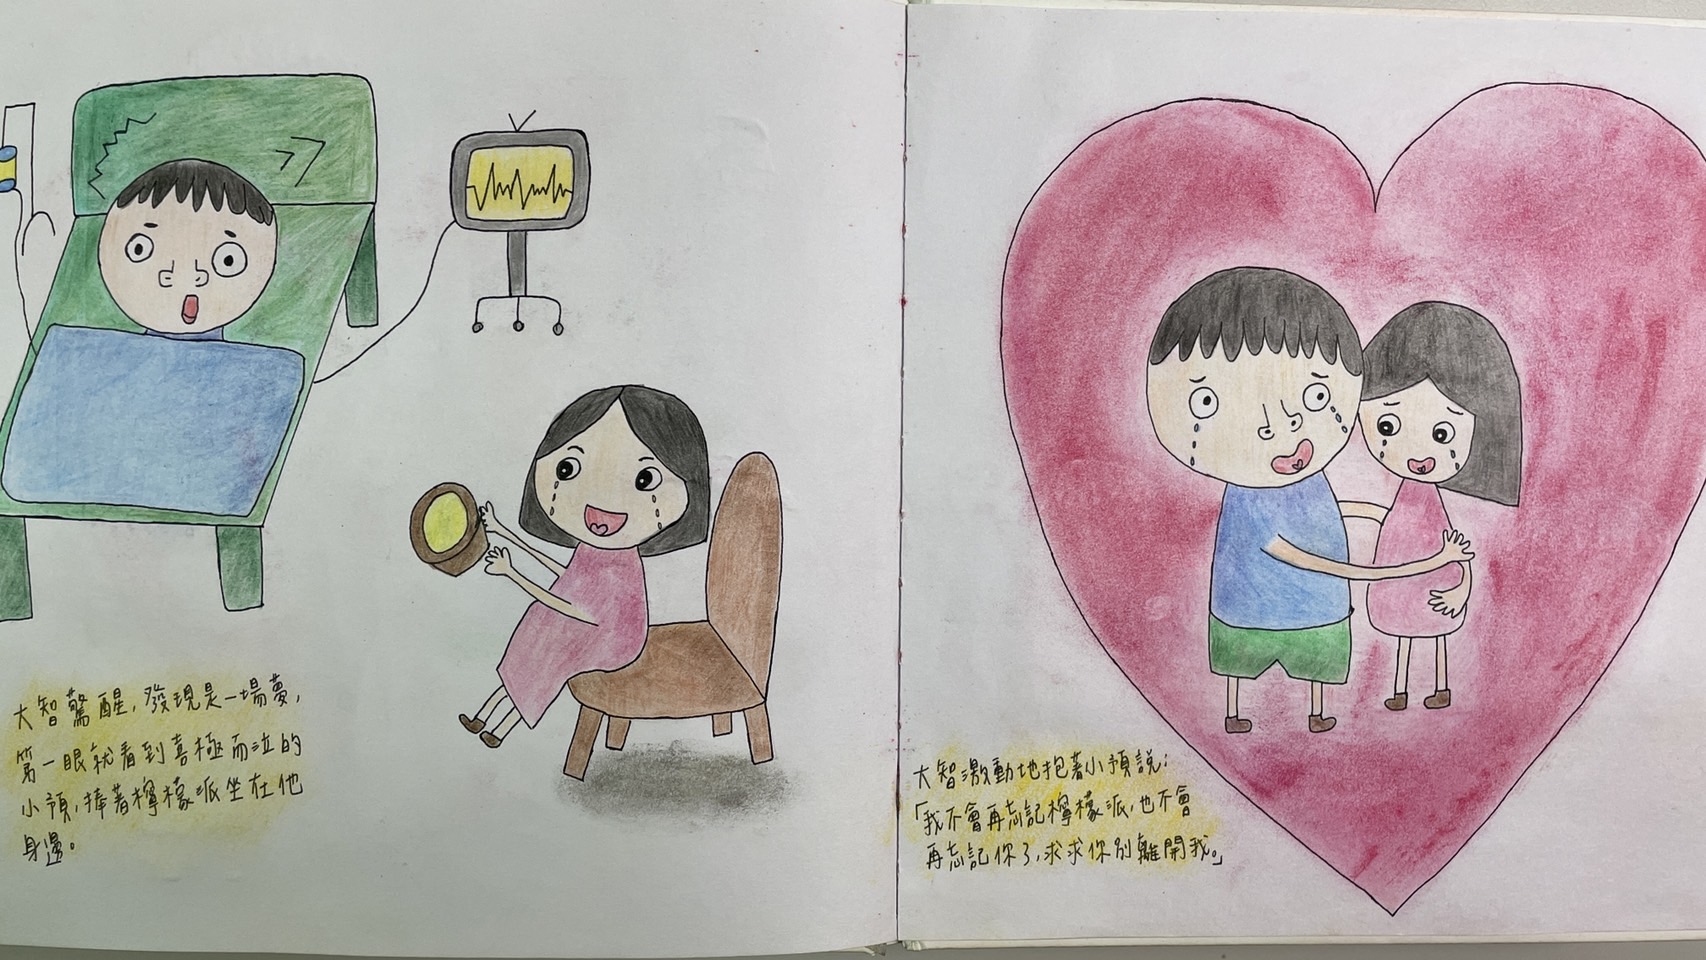 大智驚醒，發現是一場夢，
第一眼就看到喜極而泣的
小預，捧著檸檬派坐在他
身邊。
大智激動地抱著小預說：
「我不會再忘記檸檬派，也不會
再忘記你了，求求你別離開我。」